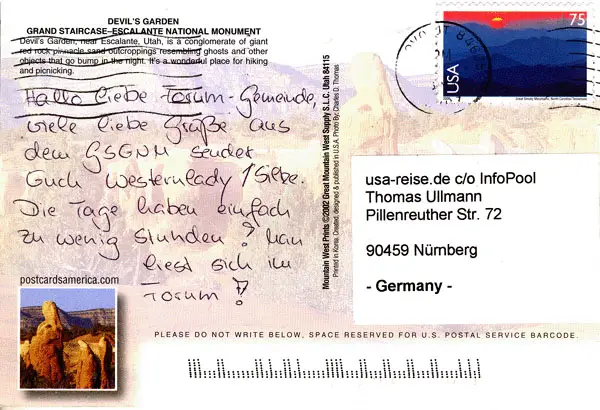 DEVIL'S GARDEN
GRAND STAIRCASE–ESCALANTE NATIONAL MONUMENT
Devil's Garden, near Escalante, Utah, is a conglomerate of giant
red rock pinnacle sand outcroppings resembling ghosts and other
objects that go bump in the night. It's a wonderful place for hiking
and picnicking.
Hallo liebe Forum-Gemeinde,
viele liebe Grüße aus
dem GSENM sendet
Euch Westernlady / Silke.
Die Tage haben einfach
zu wenig Stunden? Man
liest sich im
Forum!
postcardsamerica.com
Mountain West Prints ©2002 Great Mountain West Supply S.L.C. Utah 84115
Printed in Korea. Created, designed & published in U.S.A. Photo By: Charles D. Thomas
75
USA
Great Smoky Mountains, North Carolina/Tennessee
usa-reise.de c/o InfoPool
Thomas Ullmann
Pillenreuther Str. 72
90459 Nürnberg
- Germany -
PLEASE DO NOT WRITE BELOW, SPACE RESERVED FOR U.S. POSTAL SERVICE BARCODE.